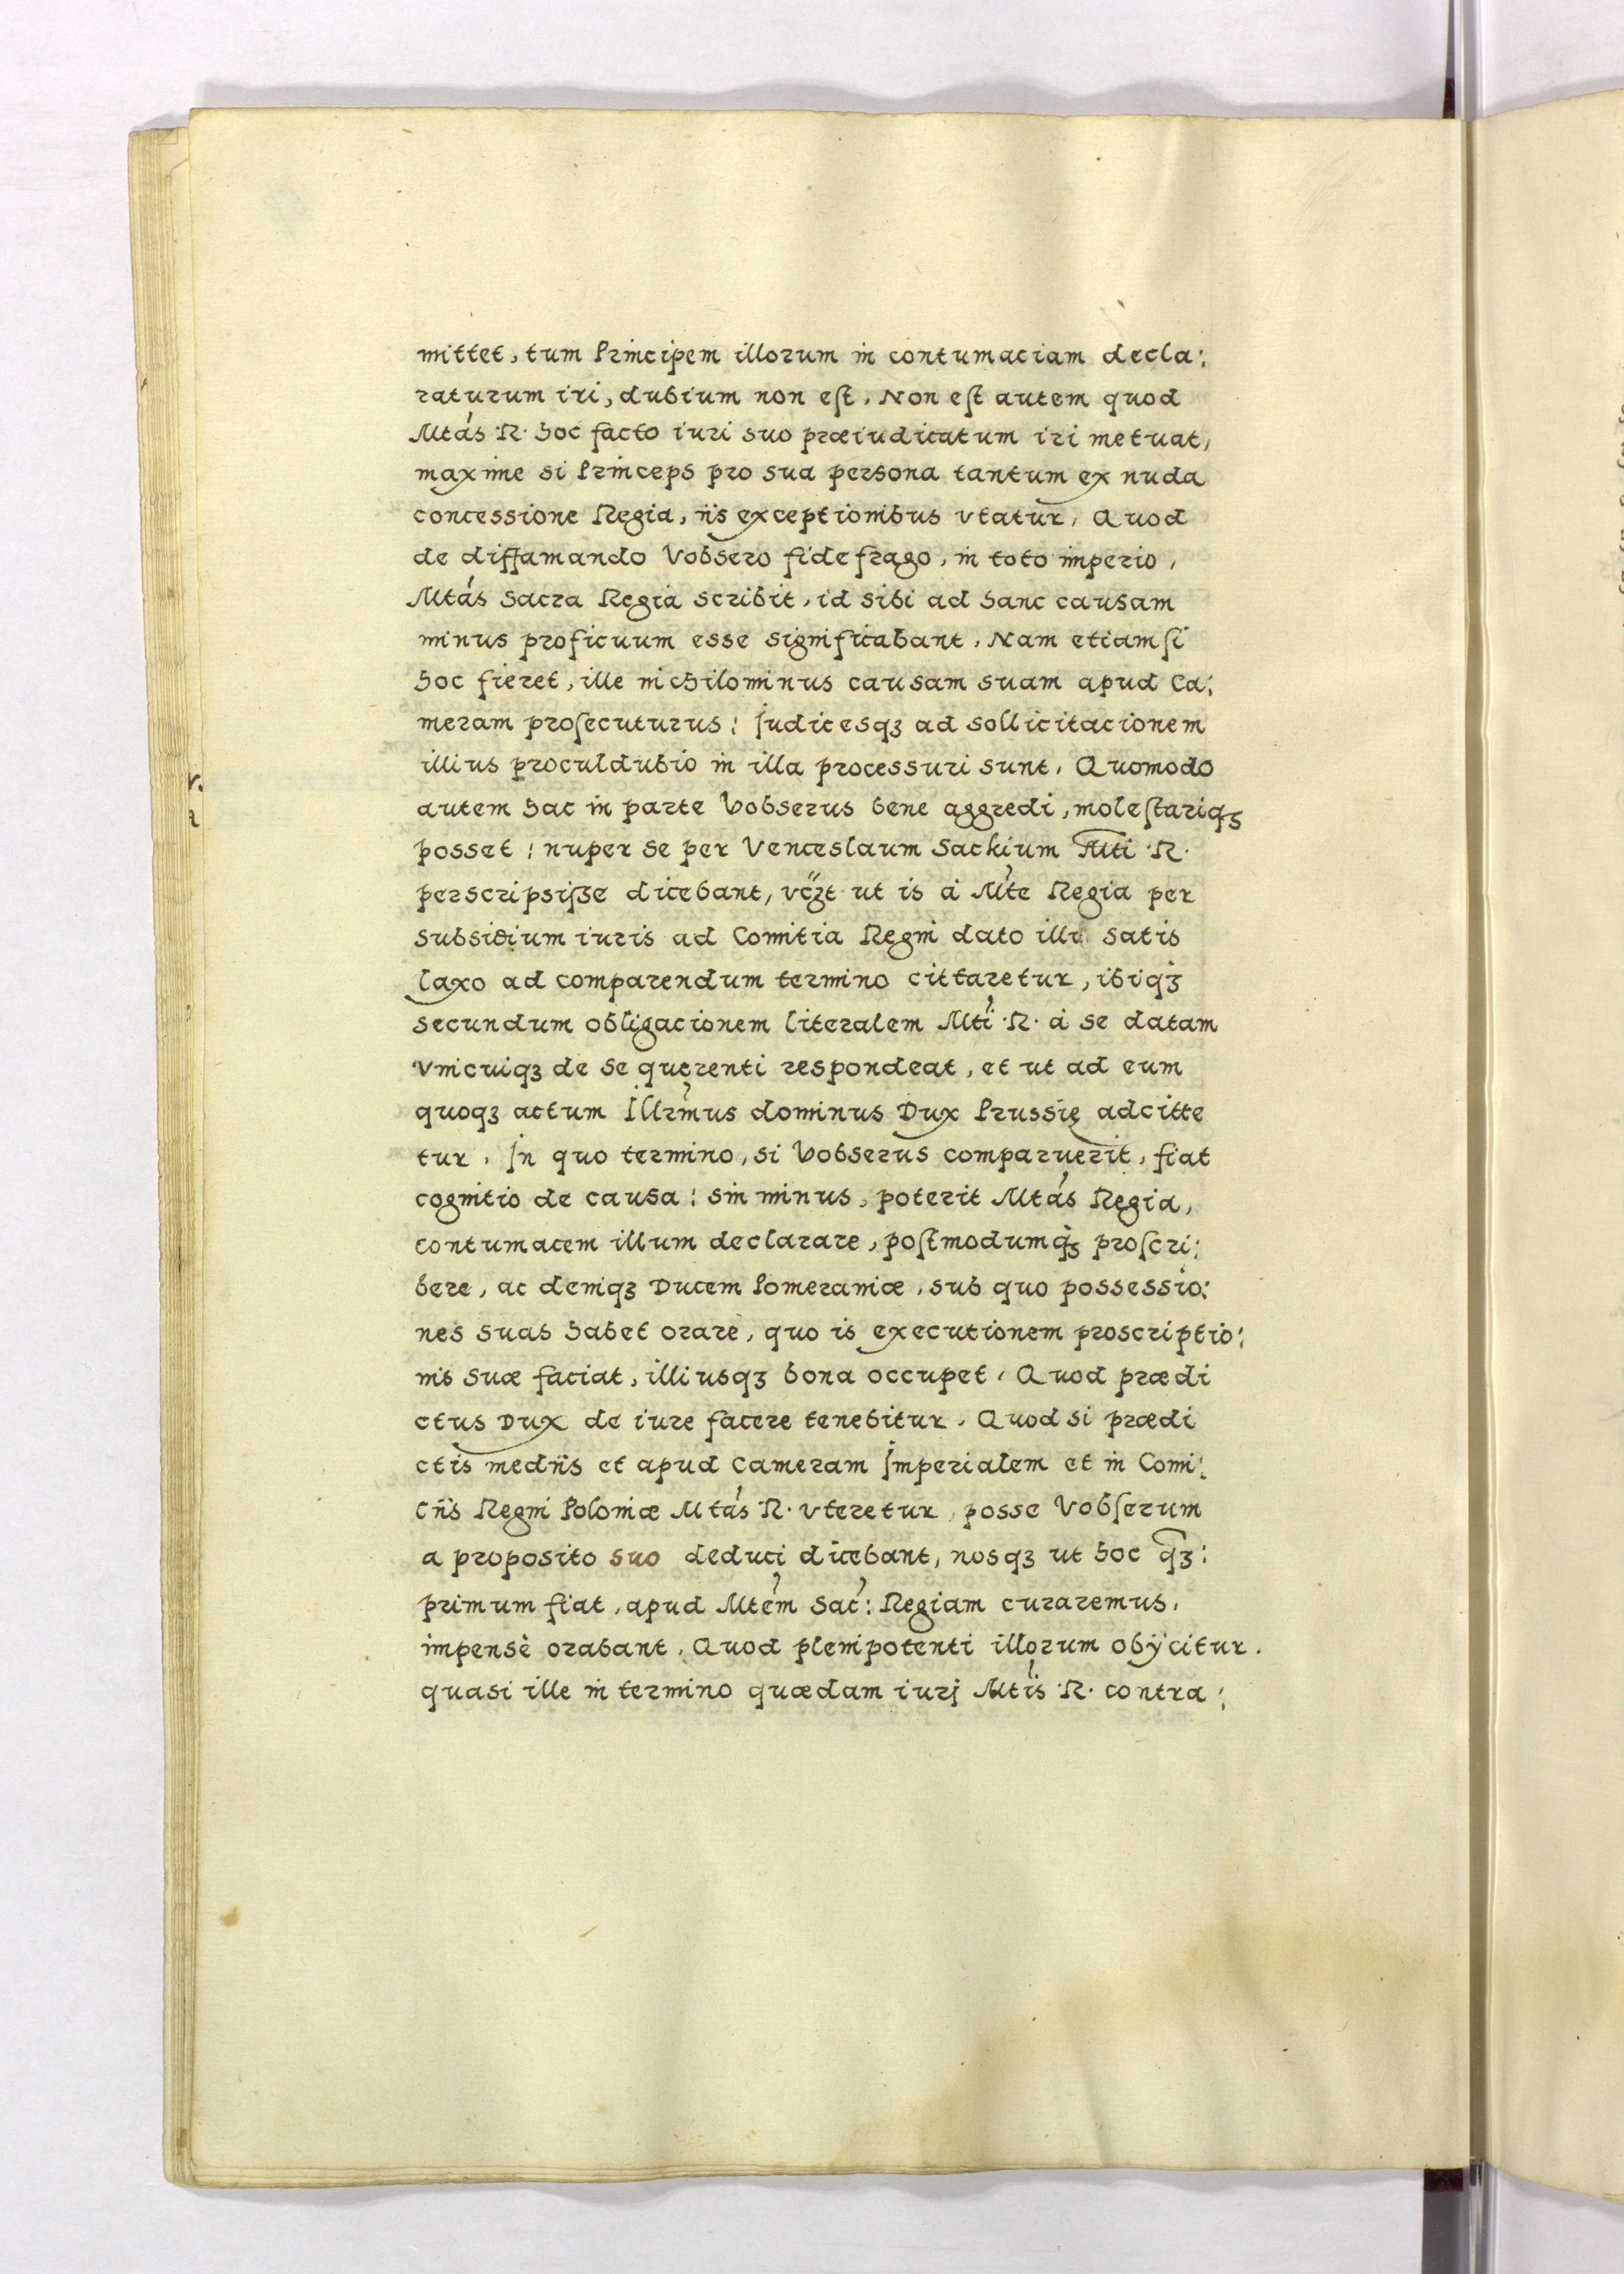 mittet, tum Principem illorum in contumaciam decla:
raturum iri, dubium non est. Non est autem quod
Mtás R. hoc facto iuri suo præiudicatum iri metuat,
maxime si Princeps pro sua persona tantum ex nuda
concessione Regia, iis exceptionibus vtatur. Quod
de diffamando Vobsero fidefrago, in toto imperio,
Mtás Sacra Regia scribit, id sibi ad hanc causam
minus proficuum esse significabant. Nam etiamsi
hoc fieret, ille nichilominus causam suam apud Ca:
meram prosecuturus: Judicesqꝫ ad sollicitacionem
illius proculdubio in illa processuri sunt. Quomodo
autem hac in parte Vobserus bene aggredi, molestariqꝫ
posset: nuper se per Venceslaum Sackium Mti R.
perscripsisse dicebant, ut is á Mte Regia per
subsidium iuris ad Comitia Regni dato illi satis
laxo ad comparendum termino cittaretur, ibiqꝫ
secundum obligacionem literalem Mti R. á se datam
vnicuiqꝫ de se querenti respondeat, et ut ad eum
quoqꝫ actum Illrmus dominus Dux Prussię adcitte
tur. In quo termino, si Vobserus comparuerit, fiat
cognitio de causa: sin minus, poterit Mtás Regia,
contumacem illum declarare, postmodumqꝫ proscri:
bere, ac deniqꝫ Ducem Pomeraniæ, sub quo possessio:
nes suas habet orare, quo is executionem proscriptio:
nis suæ faciat, illiusqꝫ bona occupet. Quod prædi
ctus Dux de iure facere tenebitur. Quod si prædi
ctis mediis et apud Cameram Imperialem et in Comi:
ciis Regni Poloniæ Mtás R. vteretur, posse Vobserum
a proposito suo deduci dicebant, nosqꝫ ut hoc qꝫ:
primum fiat, apud Mtem Sac: Regiam curaremus,
impensè orabant. Quod plenipotenti illorum obÿcitur.
quasi ille in termino quædam iurj Mtis R. contra: